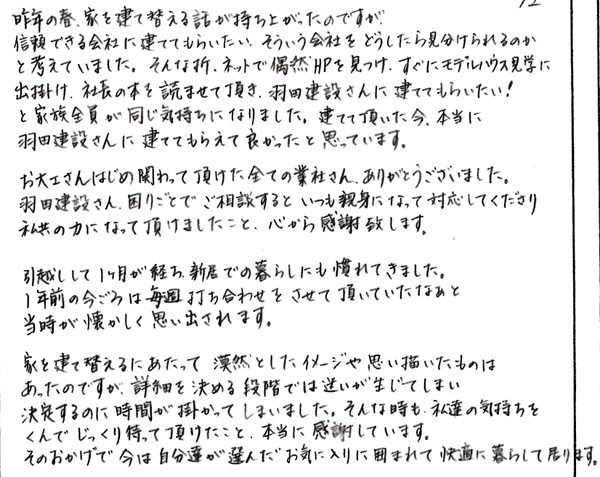 昨年の春、家を建て替える話が持ち上がったのですが
信頼できる会社に建ててもらいたい、そういう会社をどうしたら見分けられるのか
と考えていました。そんな折、ネットで偶然HPを見つけ、すぐにモデルハウス見学に
出掛け、社長の本を読ませて頂き、羽田建設さんに建ててもらいたい!
と家族全員が同じ気持ちになりました。建てて頂いた今、本当に
羽田建設さんに建ててもらえて良かったと思っています。
お大工さんはじめ関わって頂けた全ての業社さん、ありがとうございました。
羽田建設さん、困りごとでご相談するといつも親身になって対応してくださり
私共の力になって頂けましたこと、心から感謝致します。
引越しして1ヶ月が経ち、新居での暮らしにも慣れてきました。
1年前の今ごろは毎週打ち合わせをさせて頂いていたなぁと
当時が懐かしく思い出されます。
家を建て替えるにあたって漠然としたイメージや思い描いたものは
あったのですが、詳細を決める段階では迷いが生じてしまい
決定するのに時間が掛かってしまいました。そんな時も、私達の気持ちを
くんでじっくり待って頂けたこと、本当に感謝しています。
そのおかげで今は自分達が選んだお気に入りに囲まれて快適に暮らして居ります。